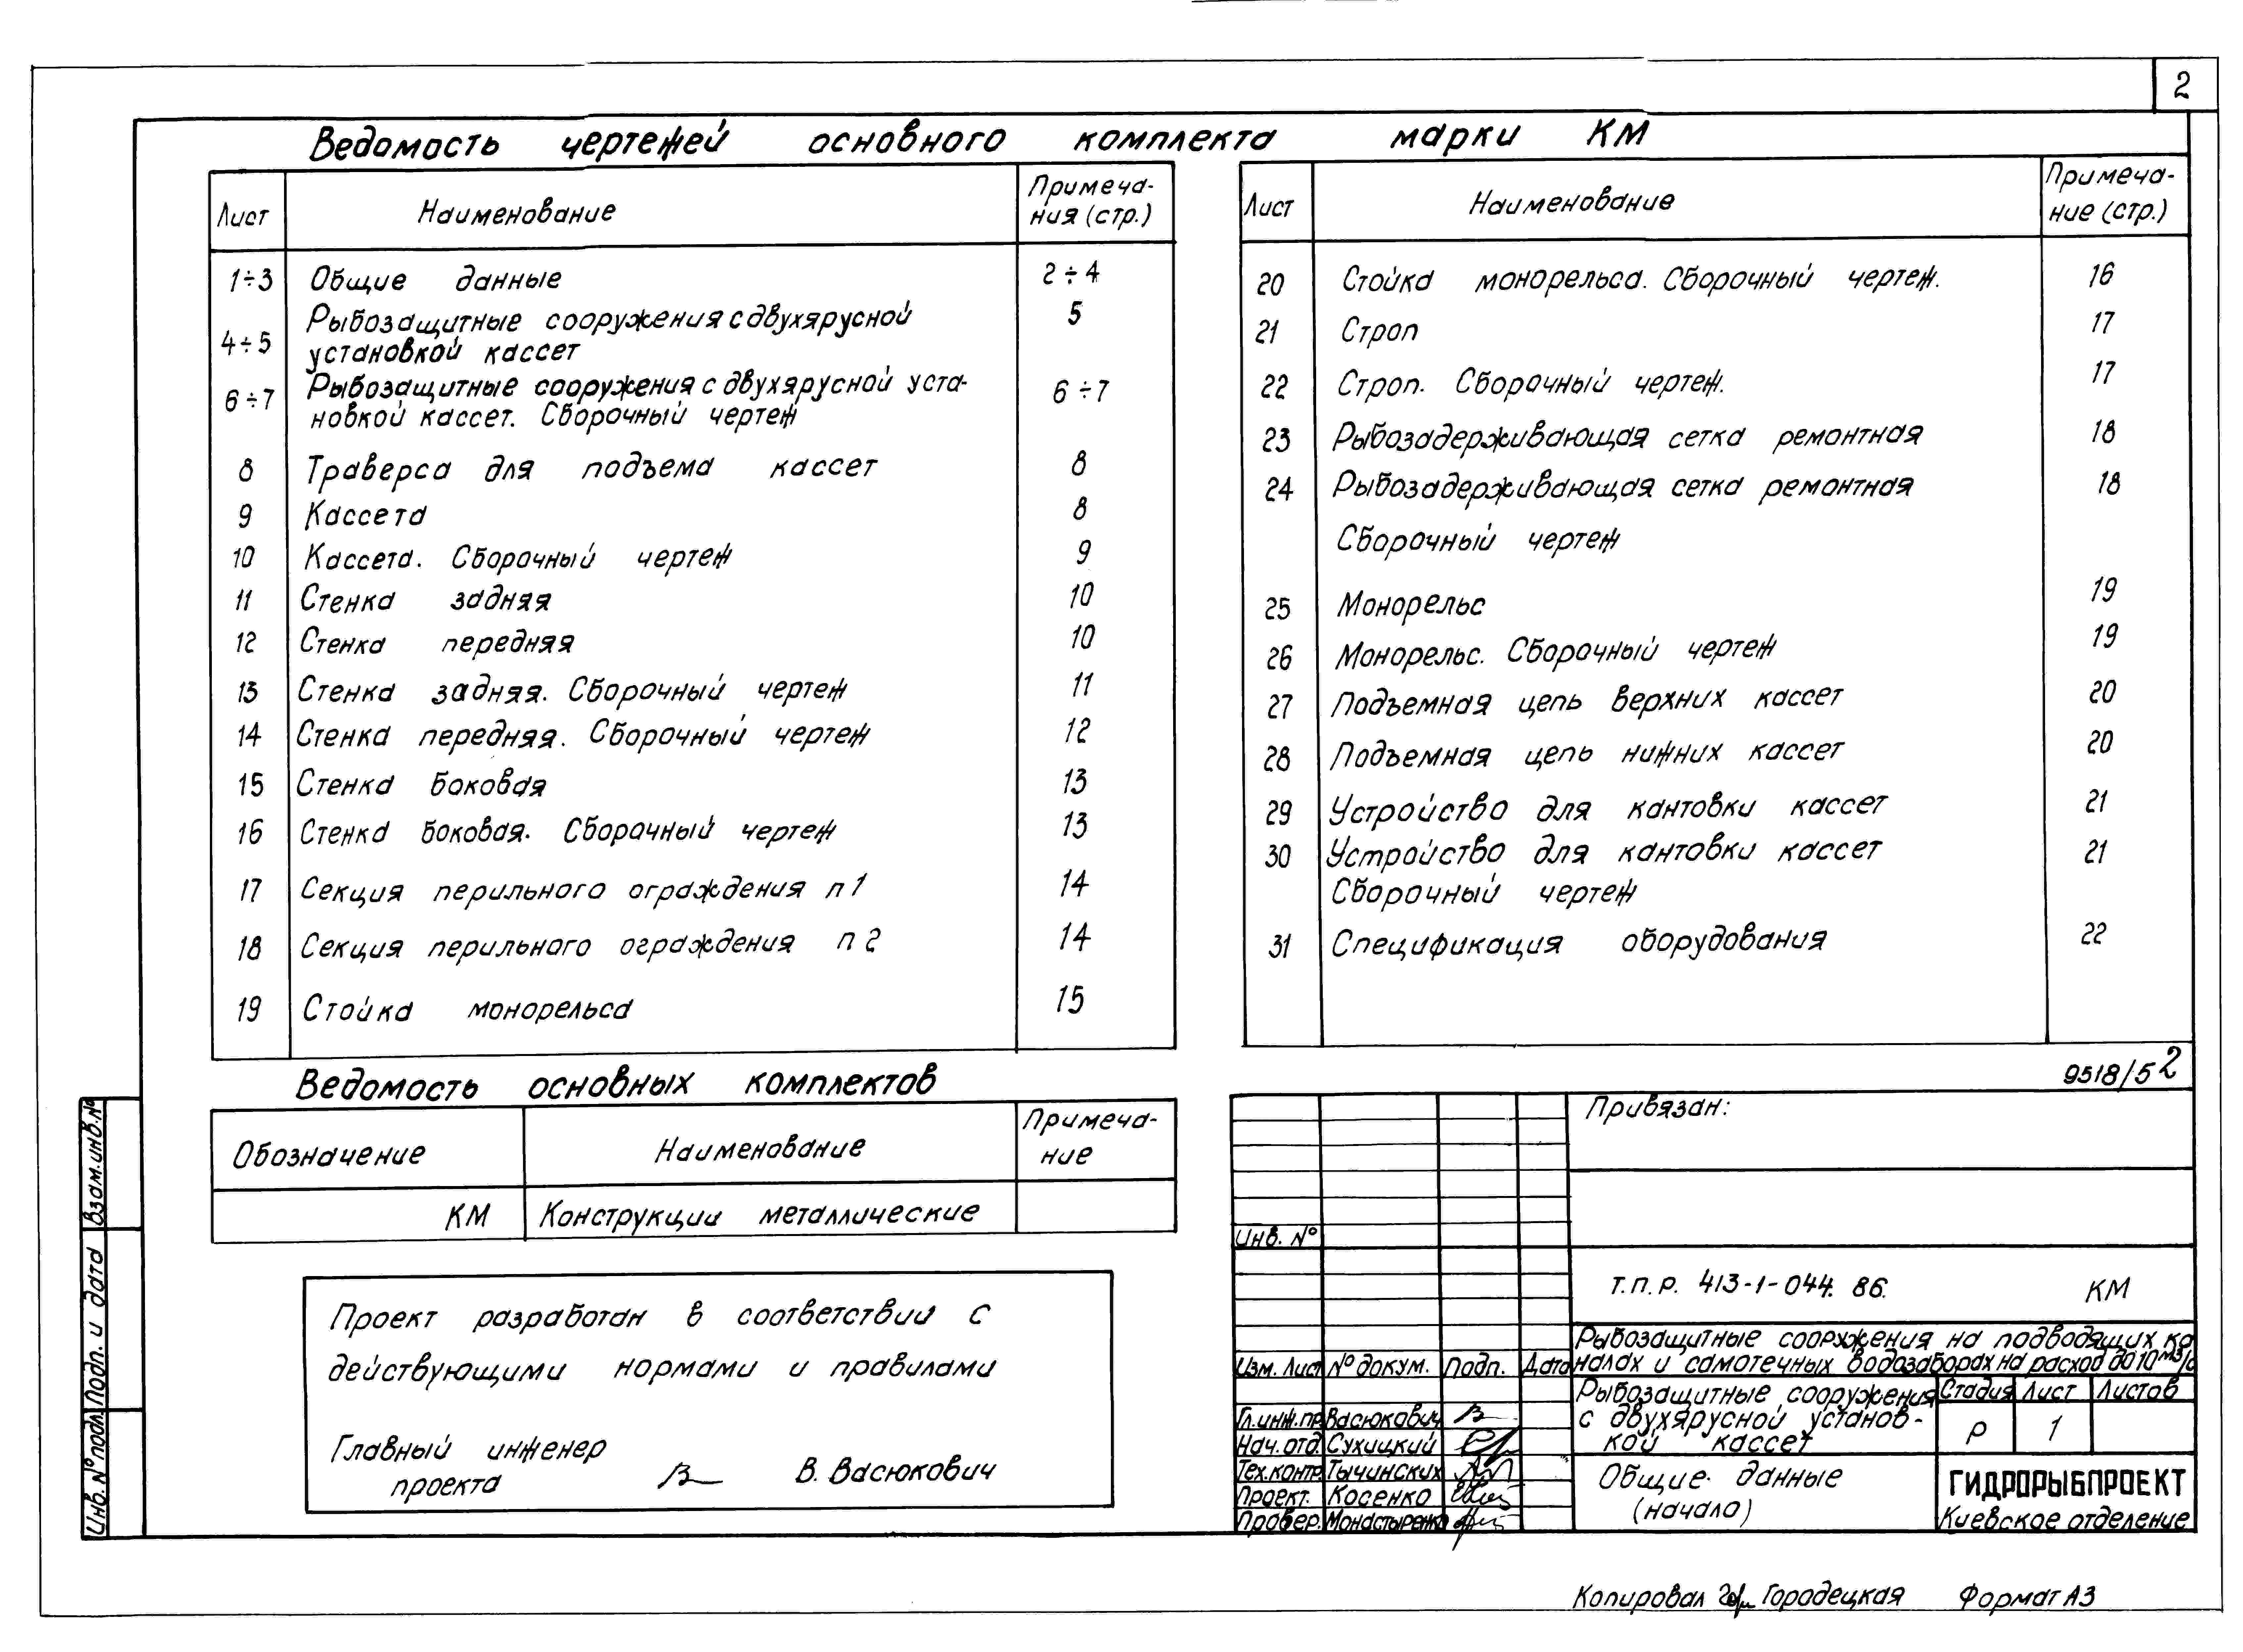 2
Ведомость чертежей основного комплекта марки КМ
Лист Наименование Примеча-
ния (стр.)
1÷3 Общие данные 2÷4
4÷5 Рыбозащитные сооружения с двухярусной 5
установкой кассет
6÷7 Рыбозащитные сооружения с двухярусной уста- 6÷7
новкой кассет. Сборочный чертеж
8 Траверса для подъема кассет 8
9 Кассета 8
10 Кассета. Сборочный чертеж 9
11 Стенка задняя 10
12 Стенка передняя 10
13 Стенка задняя. Сборочный чертеж 11
14 Стенка передняя. Сборочный чертеж 12
15 Стенка боковая 13
16 Стенка боковая. Сборочный чертеж 13
17 Секция перильного ограждения п1 14
18 Секция перильного ограждения п2 14
19 Стойка монорельса 15
Лист Наименование Примеча-
ние (стр.)
20 Стойка монорельса. Сборочный чертеж. 16
21 Строп 17
22 Строп. Сборочный чертеж. 17
23 Рыбозадерживающая сетка ремонтная 18
24 Рыбозадерживающая сетка ремонтная 18
Сборочный чертеж
25 Монорельс 19
26 Монорельс. Сборочный чертеж 19
27 Подъемная цепь верхних кассет 20
28 Подъемная цепь нижних кассет 20
29 Устройство для кантовки кассет 21
30 Устройство для кантовки кассет 21
Сборочный чертеж
31 Спецификация оборудования 22
9518/5 2
Ведомость основных комплектов
Обозначение Наименование Примеча-
ние
КМ Конструкции металлические
Проект разработан в соответствии с
действующими нормами и правилами
Главный инженер
проекта В. Васюкович
Взам.инв.№
Подп. и дата
Инв. № подл.
Привязан:
Инв. №
т.п.р. 413-1-044.86. КМ
Рыбозащитные сооружения на подводящих ка
налах и самотечных водозаборах на расход до 10 м3/с
Изм. Лист № докум. Подп. Дата
Гл.инж.пр. Васюкович
Нач.отд. Сухицкий
Тех.контр. Тычинских
Проект. Косенко
Провер. Монастыренко
Рыбозащитные сооружения
с двухярусной установ-
кой кассет
Стадия Лист Листов
Р 1
Общие данные
(начало)
ГИДРОРЫБПРОЕКТ
Киевское отделение
Копировал Городецкая Формат А3